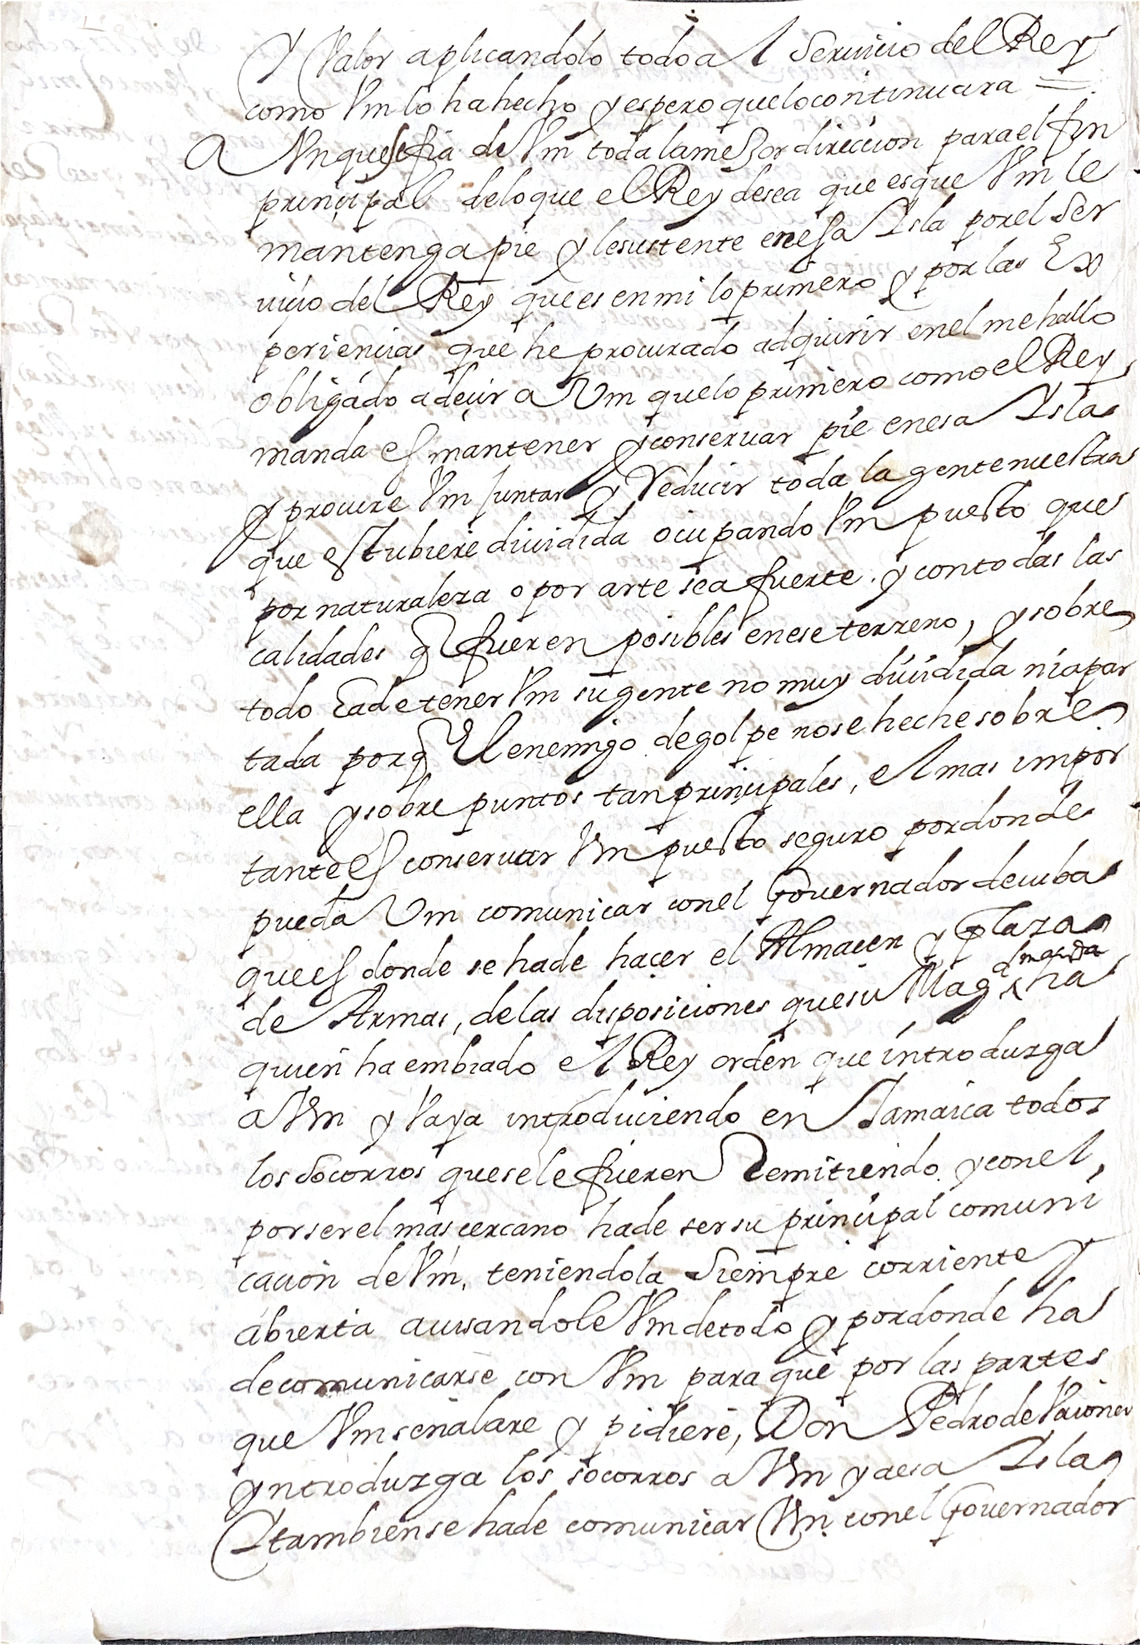 Y Valor aplicandolo todo al Seruicio del Rey
como Vm lo ha hecho y espero que lo continuara =
A Vnque se fia de Vm toda la mejor direccion para el fin
principal de lo que el Rey desea que es que Vm le
mantenga pie y le sustente en esa Isla por el Ser
uiçio del Rey que es en mi lo primero y por las Ex
periencias que he procurado adquirir en el me hallo
obligado a decir a Vm que lo primero como el Rey
manda es mantener y conseruar pie en esa Isla
y procure Vm juntar y reducir toda la gente nuestra
que estubiere diuidida ocupando Vm puesto que
por naturaleza o por arte sea fuerte. y con todas las
calidades q fueren posibles en ese terreno, y sobre
todo ha de tener Vm su gente no muy diuidida ni apar
tada porq El enemigo de golpe no se heche sobre
ella y sobre puntos tan prinçipales, el mas impor
tante es conseruar Vm puesto seguro por donde
pueda Vm comunicar con el Gouernador de cuba
que es donde se ha de haçer el Almacen y plaza
de Armas, de las disposiciones que su Magd ha
quien ha embiado el Rey orden que introduzga
a Vm y Vaya introduciendo en Jamaica todos
los Socorros que se le fueren Remitiendo y con el,
por ser el mas cercano ha de ser su principal comuni
cacion de Vm, teniendola Siempre corriente y
abierta auisandole Vm de todo y por donde ha
de comunicarse con Vm para que por las partes
que Vm señalare y pidiere, Don Pedro de Vaiones
yntroduzga los socorros a Vm y a esa Isla
Y tambien se ha de comunicar Vm con el Gouernador